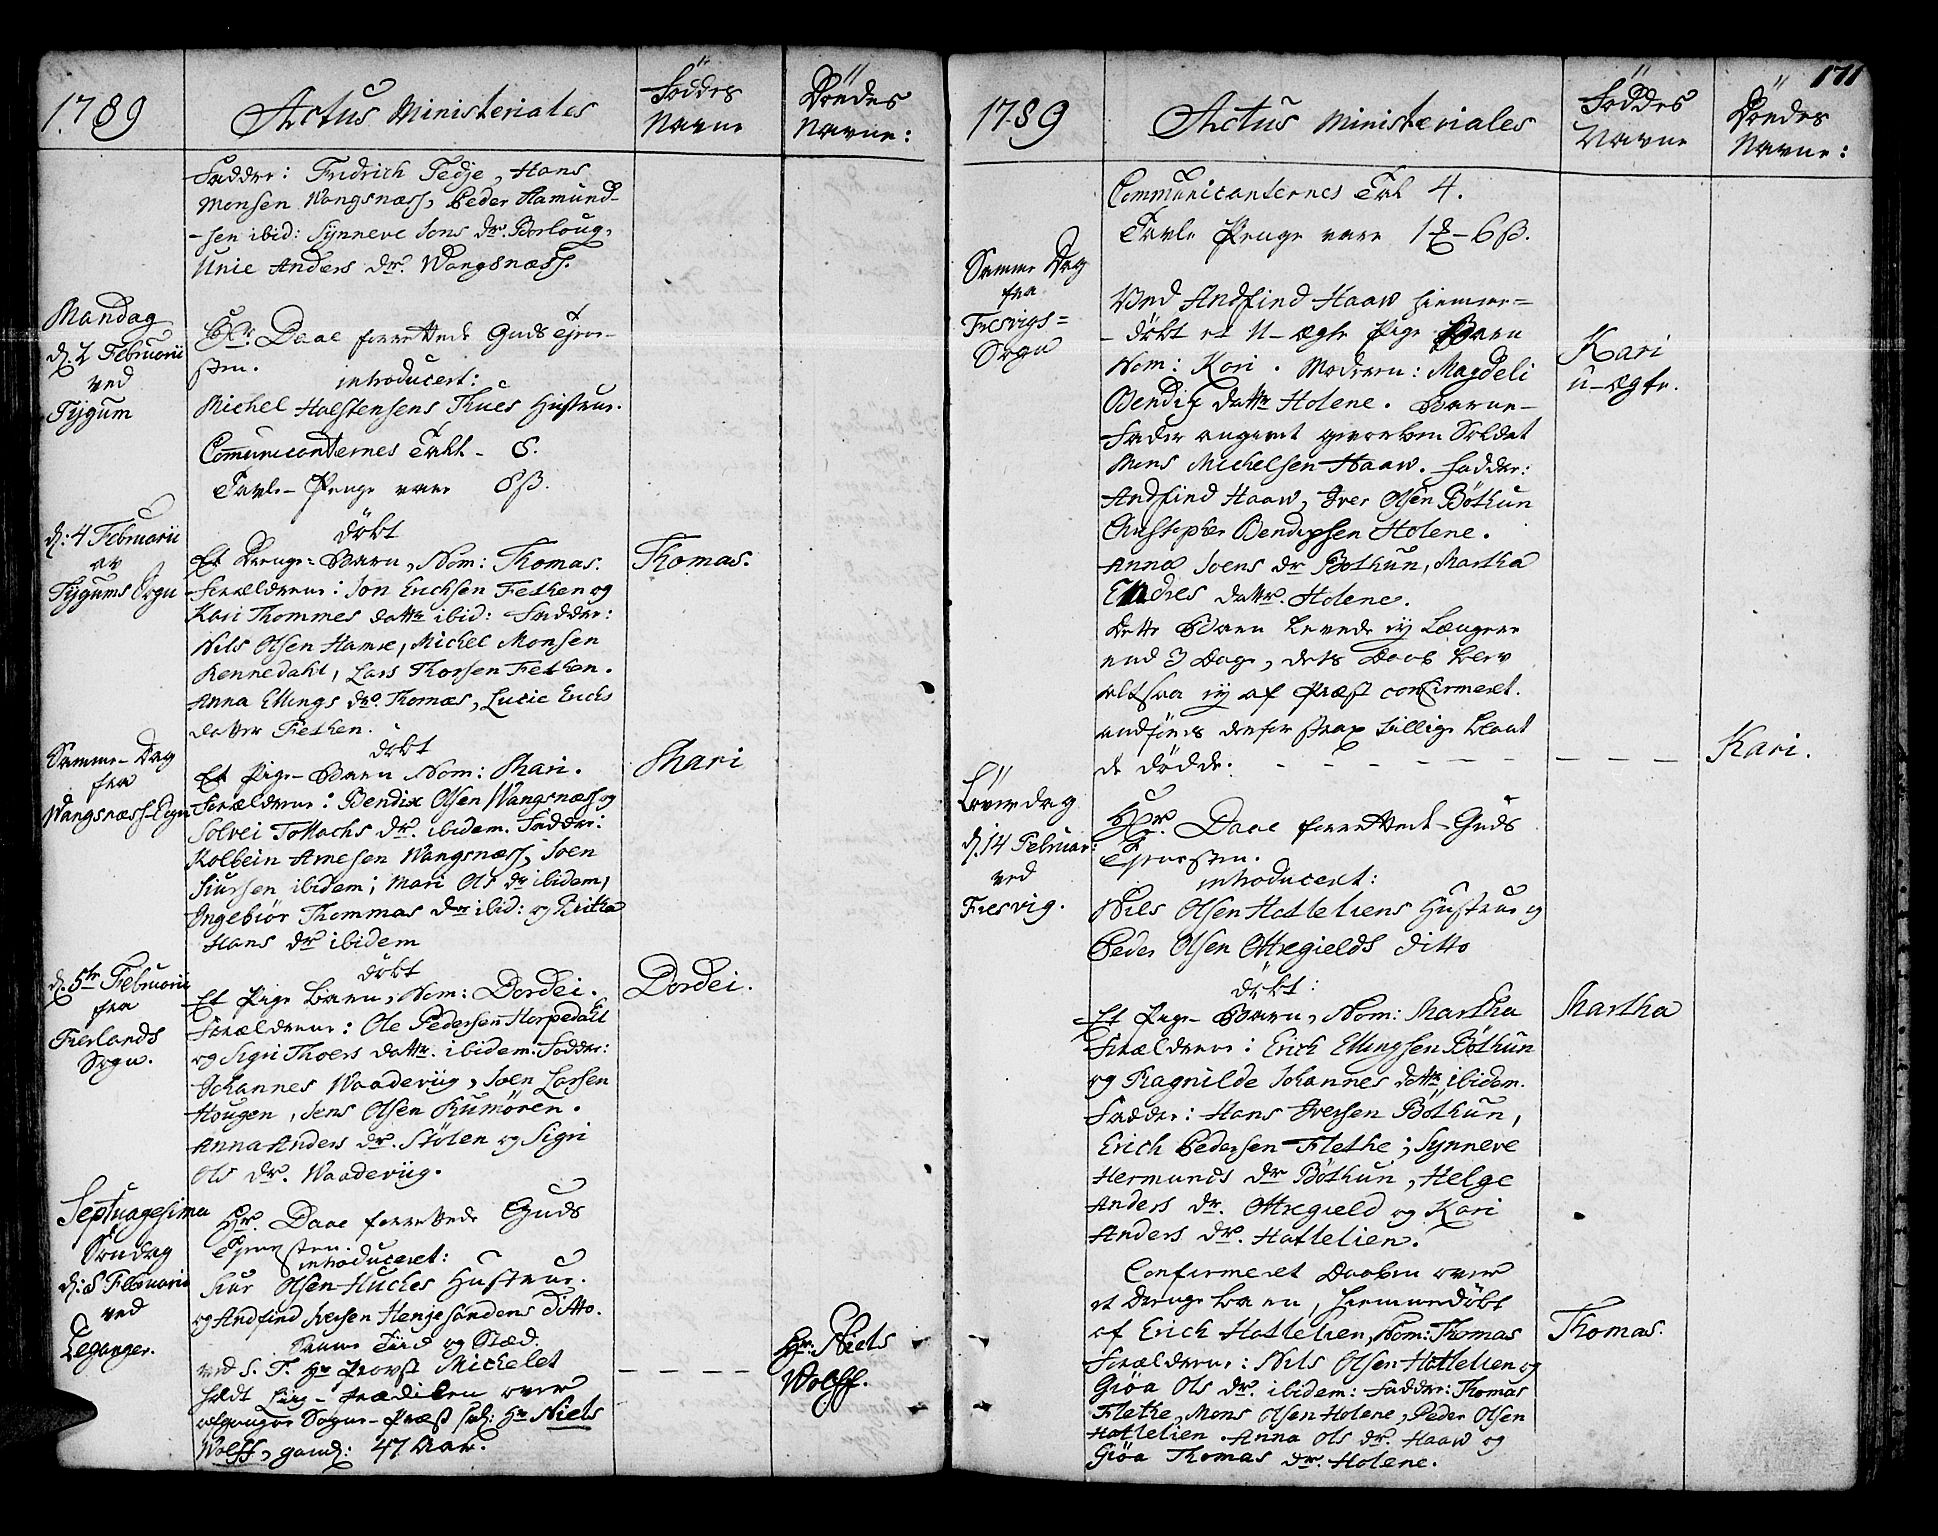 1789
Actus Ministeriales
Föddes
Navne
Döedes
Navne:
Fadder: Fridrich Tedje, Hans
Monsen Wangsnæss, Peder Hamund-
-sen ibid: Synneve Jons dr. Borloug,
Unie Anders dr. Wangsnæss.
Mandag
d. 2 Februarii
ved
Tygum
Hr. Daae forrettede Guds Tjene-
sten.
introducert:
Michel Holstensens Thues Hustrue.
Communicanternes Tahl - 8.
Tavle-Penge vare 8 ß.
d: 4 Februarii
av
Tygums Sogn
döbt
Et Drenge-Barn, Nom: Thomas.
Forældrene: Jon Erichsen Fethen og
Kari Thommes dattr ibid: Fadder:
Nils Olsen Hamre, Michel Monsen
Rennedahl, Lars Thorsen Fethen.
Anna Ellings dr. Thomæs, Lucie Erichs
datter Fethen.
Thomas.
Samme-Dag
fra
Wangsnæss-Sogn
döbt
Et Pige-Barn Nom: Mari.
Forældrene: Bendix Olsen Wangsnæss og
Solvei Tollachs dr. ibidem. Fadder:
Kolbein Arnesen Wangsnæss, Joen
Siursen ibidem; Mari Ols dr ibidem,
Ingebiör Thommas dr ibid: og Britha
Hans dr ibidem
Mari
d. 5te Februarii
fra
Fierlands
Sogn.
döbt
Et Pige Barn, Nom: Dordei.
Forældrene: Ole Pedersen Horpedahl
og Sigri Thoers dattr. ibidem. Fadder:
Johannes Waadeviig, Joen Larsen
Hougen, Jens Olsen Rumören.
Anna Anders dr. Stölen og Sigri
Ols dr. Waadeviig.
Dordei.
Septuagesima
Söndag
d: 8 Februarii
ved
Leganger.
Hr. Daae forrettede Guds
Tjenesten.
introduceret:
Siur Olsen Huches Hustrue.
og Andfind Iversen Henjesandens ditto.
Samme Tiid og Stæd
ved S. T. Hr Provst Michelet
holdt Liig-Prædiken over
afgangne Sogne-Præst sal: Hr Niels
Wolff, gaml: 47 Aar.
Hr. Niels
Wolff.
171
1789
Actus Ministeriales
Föddes
Navne
Döedes
Navne:
Communicanternes Tal 4.
Tavle Penge vare 1 - 6 ß.
Samme Dag
fra
Fresvigs=
Sogn
Ved Andfind Haaw hiemme=
-döbt et U-ægte Pige Barn
Nom: Kari. Moderen: Magdeli
Bendix dattr Holene. Barne-
Fader angivet gevorben Soldat
Mons Michelsen Haaw. Fadder:
Andfind Haaw, Iver Olsen Böthun
Christopher Bendixsen Holene.
Anna Joens dr Bothun, Martha
Endres dattr. Holene.
Dette Barn levede ej Længere
end 3 Dage, dets Daab blev
altsaa ej af Præst confirmeret.
andföres derfor strax tillige blant
de dödde.
Kari
u-ægte.
Kari.
Löverdag
d. 14 Februar:
ved
Fresvig.
Hr. Daae forrettede Guds
Tjenesten.
introduceret:
Nils Olsen Hatleliens Hustrue og
Peder Olsen Ottregields ditto
döbt:
Et Pige-Barn, Nom: Martha
Forældrene: Erich Ellingsen Böthun
og Ragnilde Johannes dattr ibidem.
Fadder: Hans Iversen Böthun,
Erich Pedersen Flethe; Synneve
Hermunds dr Böthun, Helge
Anders dr. Ottregield og Kari
Anders dr. Hatlelien.
Martha
Confirmeret Daaben over
et Drenge barn, hiemmedöbt
af Erich Hatlelien, Nom: Thomas
Forældrene: Nils Olsen Hatlelien og
Giöa Ols dr. ibidem: Fadder: Thomas
Flethe, Mons Olsen Holene, Peder Olsen
Hatlelien. Anna Ols dr. Haaw og
Giöa Thomas dr. Holene.
Thomas.